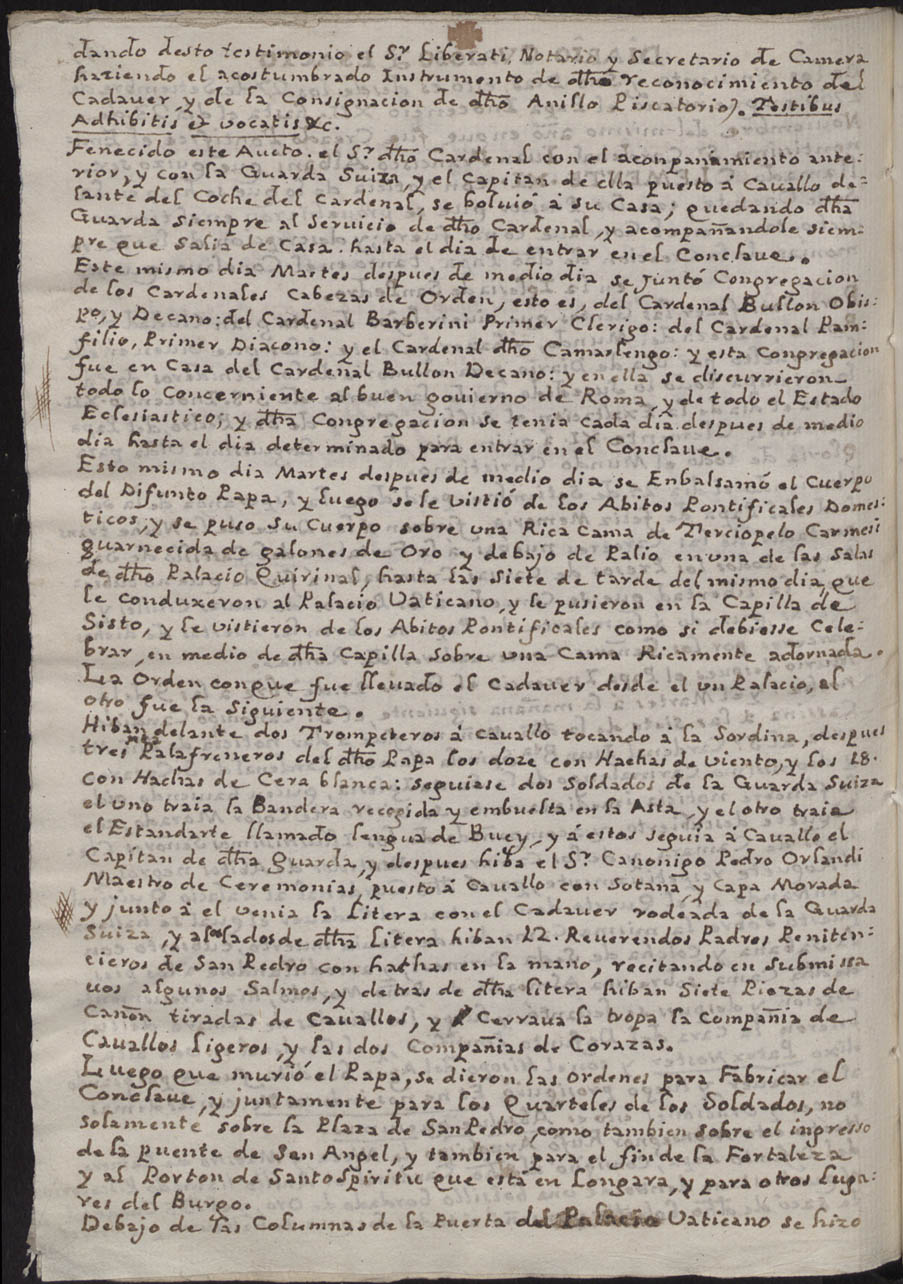 dando desto testimonio el Sr. Liberati, Notario y Secretario de Camera
haziendo el acostumbrado Instrumento de dho reconocimiento del
Cadaver, y de la Consignacion de dho Anillo Piscatorio). Testibus
Adhibitis et vocatis &c.
Fenecido este Aucto. el Sr. dho Cardenal con el aconpañamiento ante-
rior, y con la Guarda Suiza, y el Capitan de ella puesto á Cauallo de-
lante del Coche del Cardenal, se boluió a su Casa; quedando dha
Guarda siempre al Servicio de dho Cardenal, y acompañandole siem-
pre que Salia de Casa. hasta el dia de entrar en el Conclave.
Este mismo dia Martes despues de medio dia se juntó Congregacion
de los Cardenales Cabezas de Orden, esto es, del Cardenal Bullon Obis-
po, y Decano: del Cardenal Barberini Primer Clerigo: del Cardenal Pam-
filio, Primer Diacono: y el Cardenal dho Camarlengo: y esta Congregacion
fue en Casa del Cardenal Bullon Decano: y en ella se discurrieron
todo lo Concerniente al buen gouierno de Roma, y de todo el Estado
Eclesiastico; y dha Congregacion se tenia cada dia despues de medio
dia hasta el dia determinado para entrar en el Conclave.
Esto mismo dia Martes despues de medio dia se Enbalsamó el Cuerpo
del Difunto Papa, y luego se le vistió de los Abitos Pontificales Domes-
ticos, y se puso su Cuerpo sobre una Rica Cama de Terciopelo Carmesi
guarnecida de galones de Oro y debajo de Palio en una de las Salas
de dho Palacio Quirinal, hasta las Siete de tarde del mismo dia, que
le conduxeron al Palacio Vaticano, y le pusieron en la Capilla de
Sisto, y le vistieron de los Abitos Pontificales como si debiesse Cele-
brar, en medio de dha Capilla sobre una Cama Ricamente adornada.
La Orden con que fue llevado el Cadaver desde el un Palacio, al
otro fue la Siguiente.
Hiban delante dos Trompeteros á cauallo tocando á la Sordina, despues
tres Palafreneros del dho Papa los doze con Hachas de viento, y los 18.
con Hachas de Cera blanca: seguiase dos Soldados de la Guarda Suiza
el uno traia la Bandera recogida y embuelta en la Asta, y el otro traia
el Estandarte llamado lengua de Buey, y á estos seguia á Cauallo el
Capitan de dha guarda, y despues hiba el Sr. Canonigo Pedro Orlandi
Maestro de Ceremonias, puesto á Cauallo con Sotana, y Capa Morada
y junto á el venia la Litera con el Cadaver rodeada de la Guarda
Suiza, y a los lados de dha litera hiban 12. Reuerendos Padres Peniten-
cieros de San Pedro con hachas en la mano, recitando en submissa
uos algunos Salmos, y detras de dha litera hiban Siete Piezas de
Cañon tiradas de cauallos, y Cerraua la tropa la Compañia de
Cauallos ligeros, y las dos Compañias de Corazas.
Luego que murió el Papa, se dieron las ordenes para Fabricar el
Conclave, y juntamente para los Quarteles de los Soldados, no
solamente sobre la Plaza de San Pedro, como tambien sobre el ingresso
de la puente de San Angel, y tambien para el fin de la Fortaleza
y al Porton de Santo Spiritu que está en Longara, y para otros luga-
res del Burgo.
Debajo de las Columnas de la Puerta del Palacio Vaticano se hizo